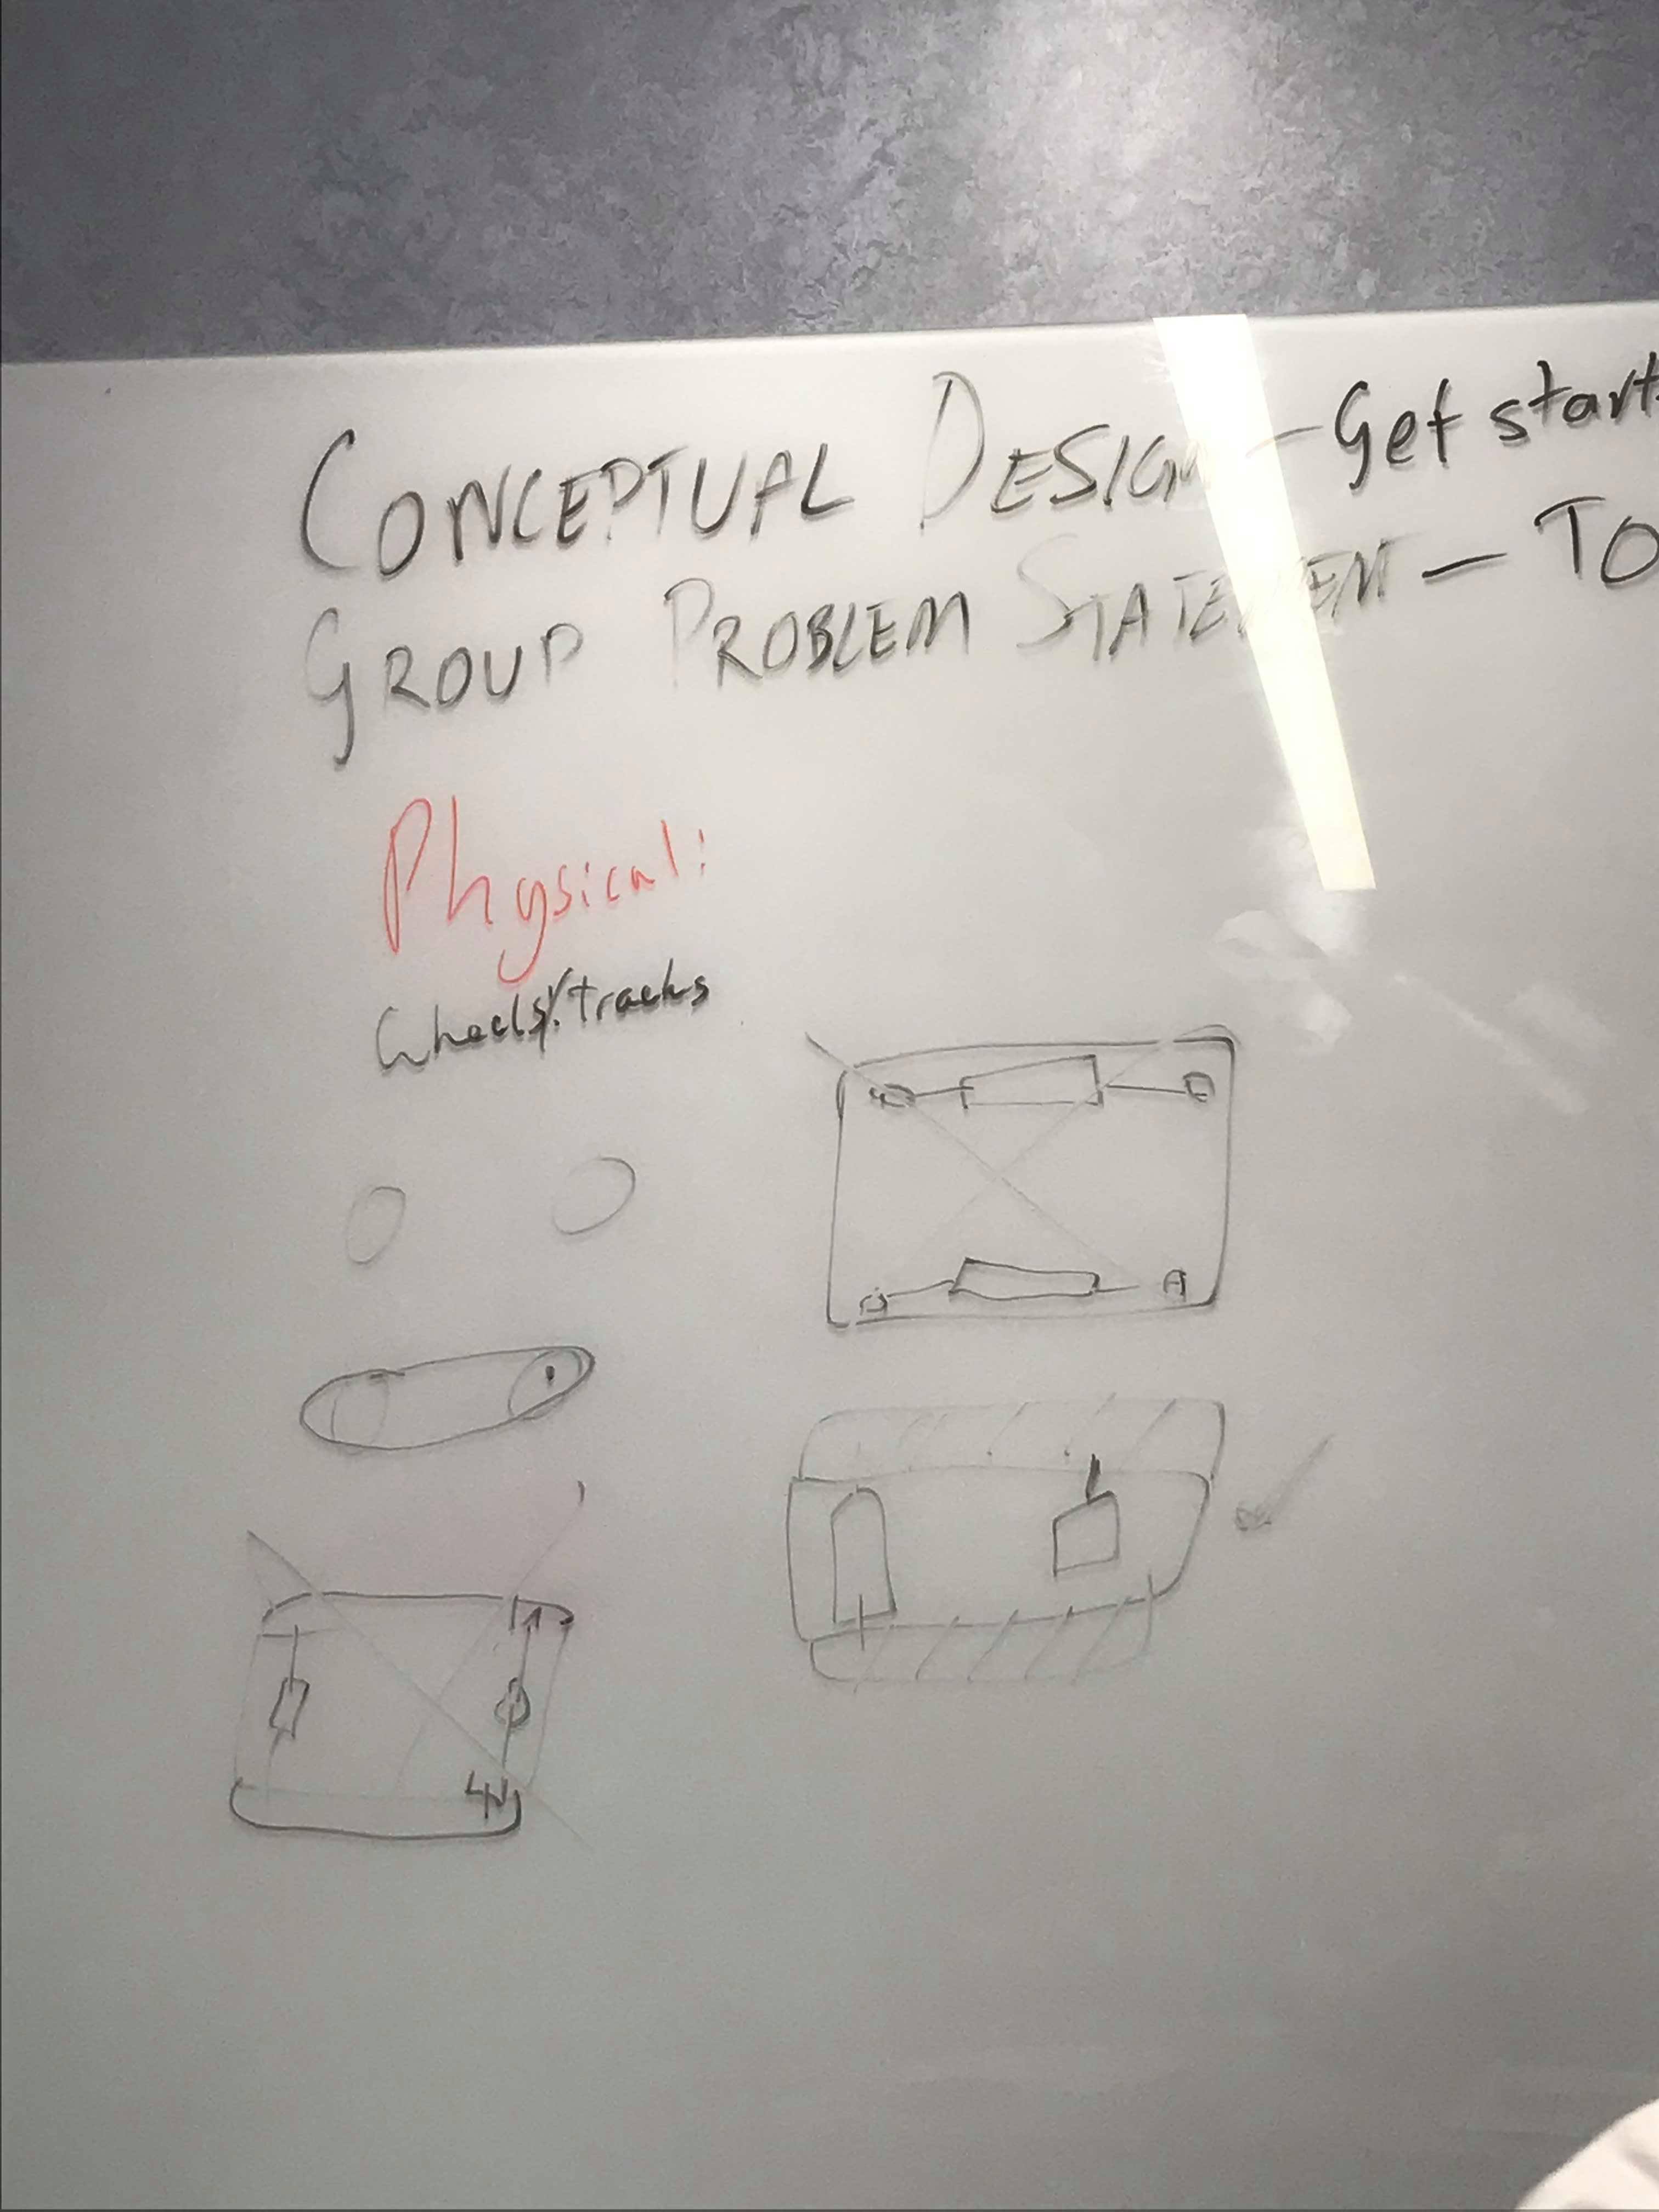 CONCEPTUAL DESIGN - Get start
GROUP PROBLEM STATEMENT - TO
Physical:
Wheels/tracks